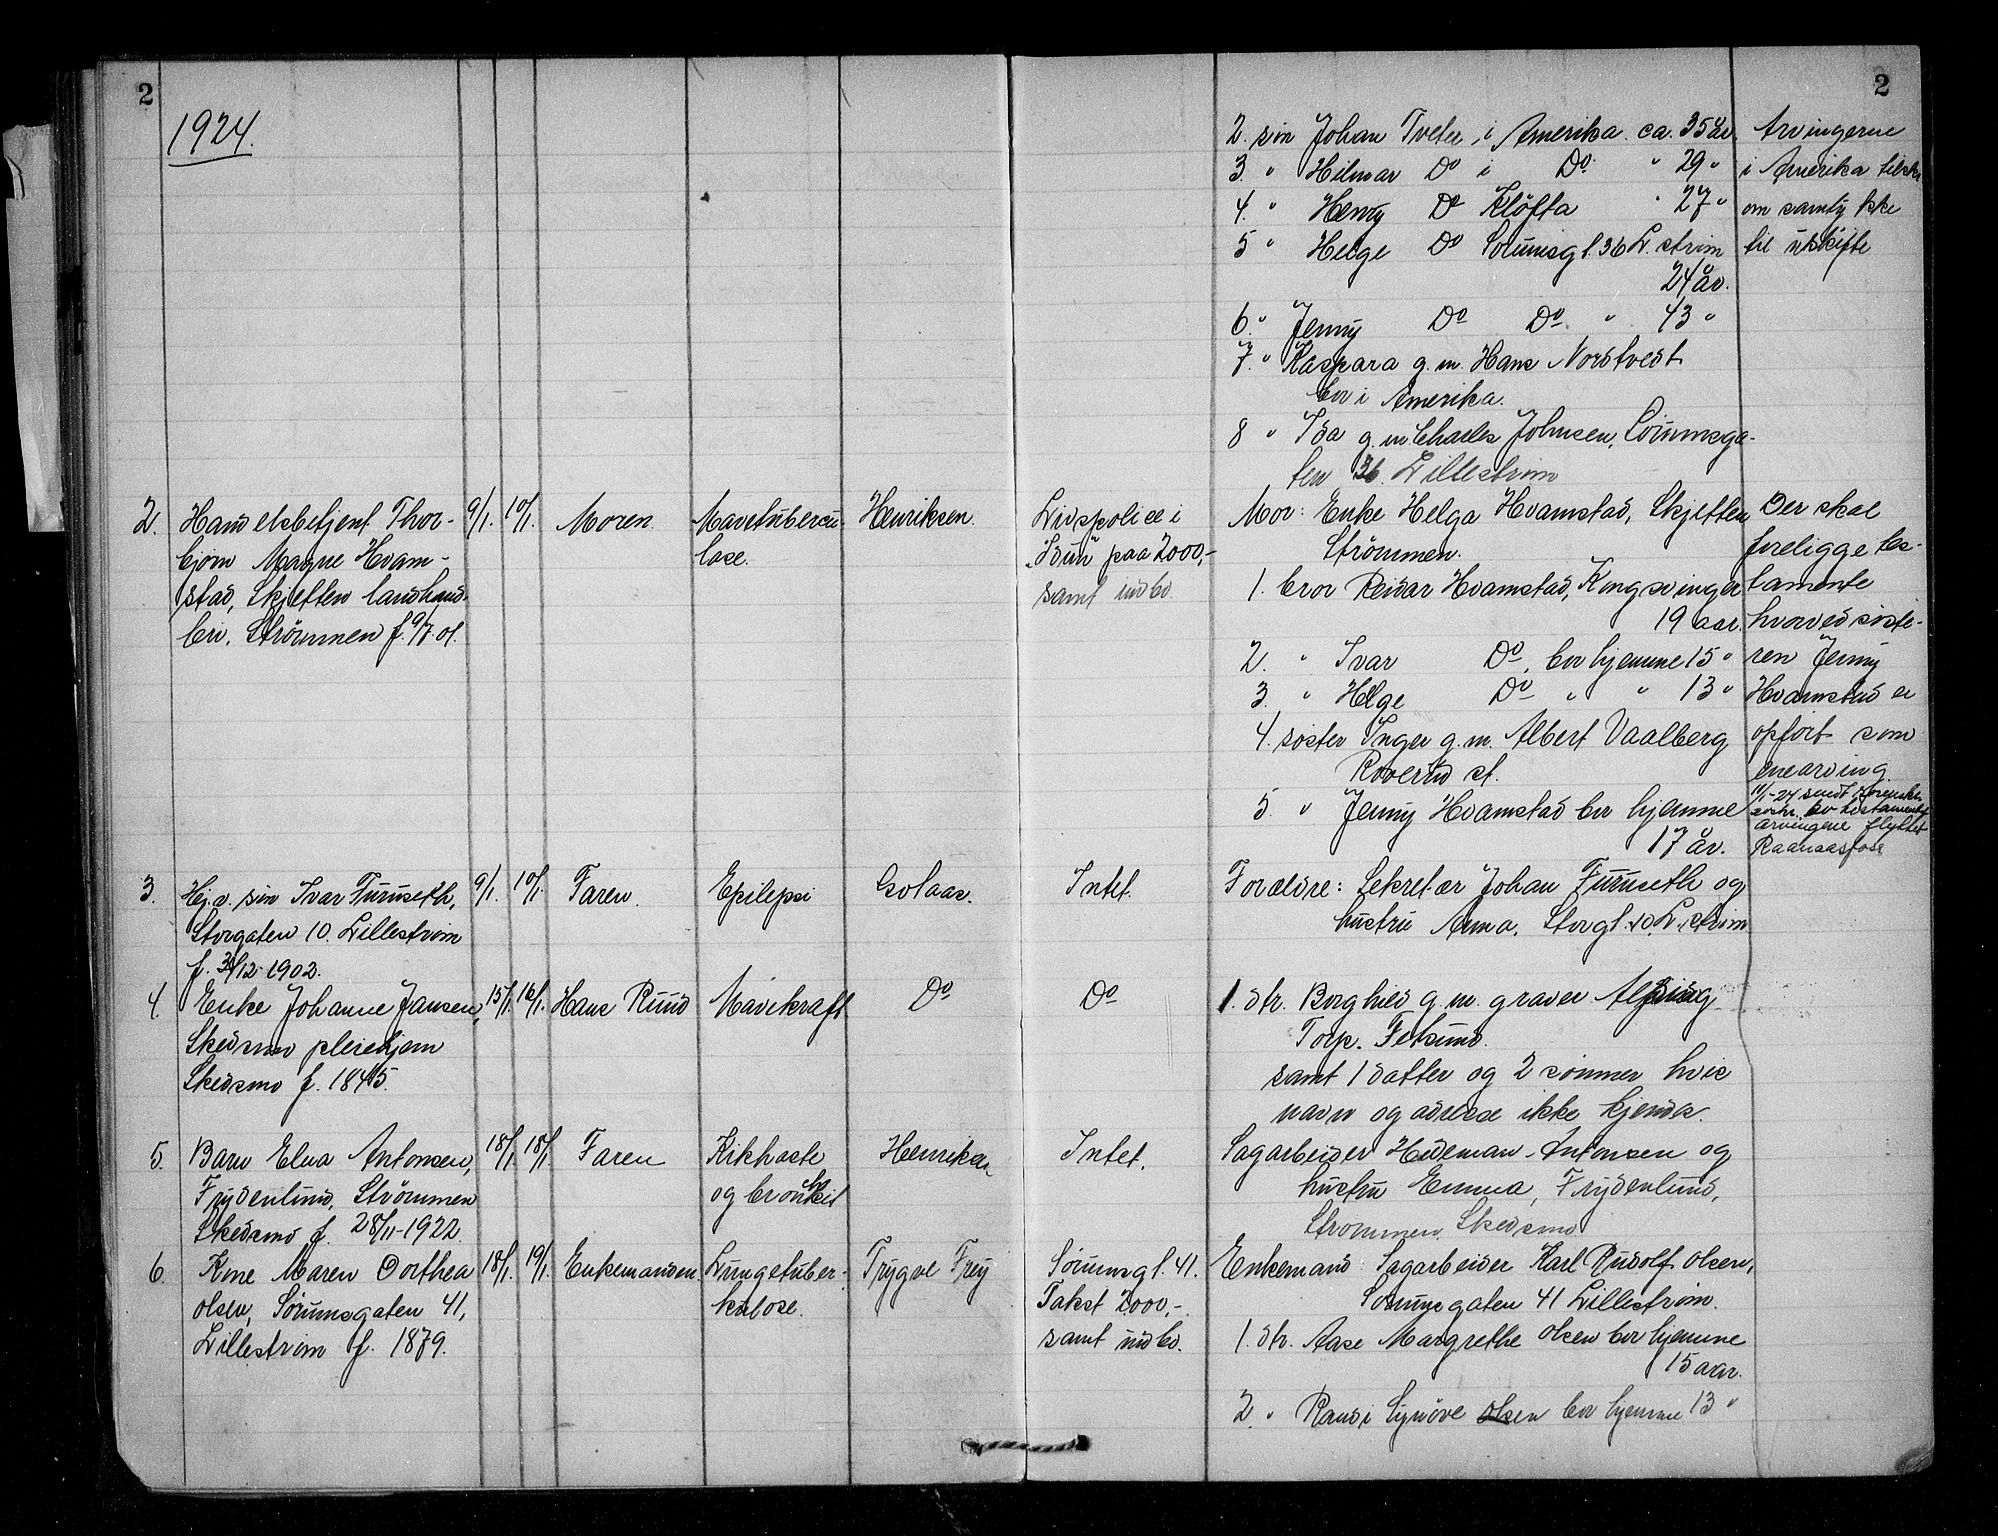 2
2
1924.
2. søn Johan Tveter, i Amerika. ca. 35 år.
3. " Hilmar Do i Do " 29 "
4. " Henry Do Kløfta " 27 "
5 " Helge Do Sørumsgt. 36 L.strøm
24 år.
6. " Jenny Do Do. " 43 "
7. " Kaspara g.m. Hans Nordtvedt
bor i Amerika.
8 " Ida g.m Charles Johnsen, Sørumsga-
ten 36. Lillestrøm
Arvingerne
i Amerika tilskr
om samty kke
til utskifte
2. Handelsbetjent Thor-
bjørn Magne Hvam-
stad, Skjetten landhand-
leri, Strømmen f. 9/7 01.
9/1. 10/1.
Moren.
Mavetubercu-
lose.
Henriksen.
Livspolice i
"Idun" paa 2000,-
samt indbo
Mor: Enke Helga Hvamstad, Skjetten
Strømmen.
1. bror Reidar Hvamstad, Kongsvinger
19 aar.
2. " Ivar Do, bor hjemme 15 "
3. " Helge Do " " 13 "
4. søster Inger g.m. Albert Vaalberg
Roverud st.
5 " Jenny Hvamstad bor hjemme
17 år.
Der skal
foreligge tes-
tamente
hvorved søste-
ren Jenny
Hvamstad er
opført som
enearving.
11/1-24 sendt
arvingene flyttet
Raanaasfoss
3. Hj.v. søn Ivar Furuseth,
Storgaten 10. Lillestrøm
f. 31/12-1902.
9/1. 10/1.
Faren.
Epilepsi
Golaas.
Intet.
Forældre: Sekretær Johan Furuseth og
hustru Anna. Storgt. 10. L.strøm
4. Enke Johanne Jansen,
Skedsmo pleiehjem
Skedsmo f. 1845.
15/1. 16/1.
Hans Ruud
Mavekræft
Do
Do
1. dtr. Borghild g.m. graver
Torp. Fetsund.
samt 1 datter og 2 sønner hvis
navn og adresse ikke kjendes.
5. Barn Elna Antonsen,
Frydenlund, Strømmen
Skedsmo f. 28/11-1922.
18/1. 18/1.
Faren
Kikhoste
og bronkit
Henriksen
Intet.
Sagarbeider Hedeman Antonsen og
hustru Emma, Frydenlund,
Strømmen. Skedsmo
6. Kone Maren Dorthea
Olsen, Sørumsgaten 41,
Lillestrøm f. 1879.
18/1. 19/1.
Enkemanden.
Lungetuber-
kulose.
Trygve Frey
Sørumsgt. 41.
Takst 2000,-
samt indbo.
Enkemand: Sagarbeider Karl Rudolf Olsen,
Sørumsgaten 41 Lillestrøm.
1. dtr. Aase Margrethe Olsen bor hjemme
15 aar.
2. " Randi Synøve Olsen bor hjemme 13 "